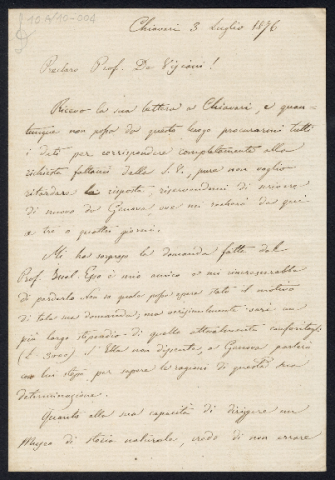 10.A/10-004
Chiavari 3 Luglio 1876
Preclaro Prof. De Visiani!
Ricevo la sua lettera a Chiavari, e quan-
tunque non possa da questo luogo procurarmi tutti
i dati per corrispondere completamente alla
richiesta fattami dalla S. V., pure non voglio
ritardare la risposta, riservandomi di scrivere
di nuovo da Genova ove mi recherò da qui
a tre o quattro giorni.
Mi ha sorpreso la domanda fatta dal
Prof. Esso è mio amico e mi rincrescerebbe
di perderlo. Non so quale possa essere stato il motivo
di tale sua domanda; ma verosimilmente sarà un
più largo stipendio di quello attualmente
(L. 3000). S'Ella non dissente, a Genova parlerò
con lui stesso per sapere la ragione di questa sua
determinazione.
Quanto alla sua capacità di dirigere un
Museo di storia naturale, credo di non errare